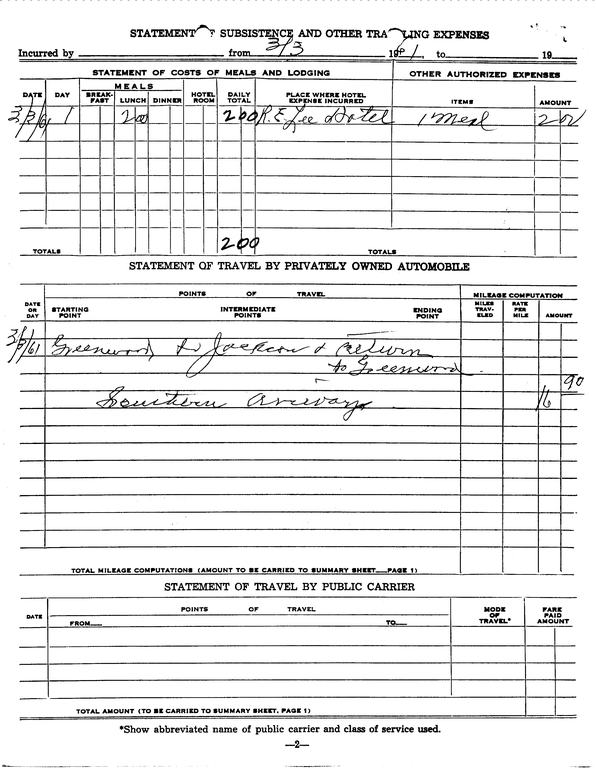 STATEMENT OF SUBSISTENCE AND OTHER TRAVELING EXPENSES
Incurred by from 3/3 1961, to 19
STATEMENT OF COSTS OF MEALS AND LODGING OTHER AUTHORIZED EXPENSES
DATE DAY MEALS BREAK-FAST LUNCH DINNER HOTEL ROOM DAILY TOTAL PLACE WHERE HOTEL EXPENSE INCURRED ITEMS AMOUNT
3/3/61 1 200 200 R. E. Lee Hotel 1 Meal 200
200
TOTALS TOTALS
STATEMENT OF TRAVEL BY PRIVATELY OWNED AUTOMOBILE
POINTS OF TRAVEL MILEAGE COMPUTATION
DATE OR DAY STARTING POINT INTERMEDIATE POINTS ENDING POINT MILES TRAV-ELED RATE PER MILE AMOUNT
3/3/61 Greenwood to Jackson & return
to Greenwood
Southern Airways 16 90
TOTAL MILEAGE COMPUTATIONS (AMOUNT TO BE CARRIED TO SUMMARY SHEET__PAGE 1)
STATEMENT OF TRAVEL BY PUBLIC CARRIER
DATE POINTS OF TRAVEL MODE OF TRAVEL* FARE PAID AMOUNT
FROM__ TO__
TOTAL AMOUNT (TO BE CARRIED TO SUMMARY SHEET, PAGE 1)
*Show abbreviated name of public carrier and class of service used.
—2—